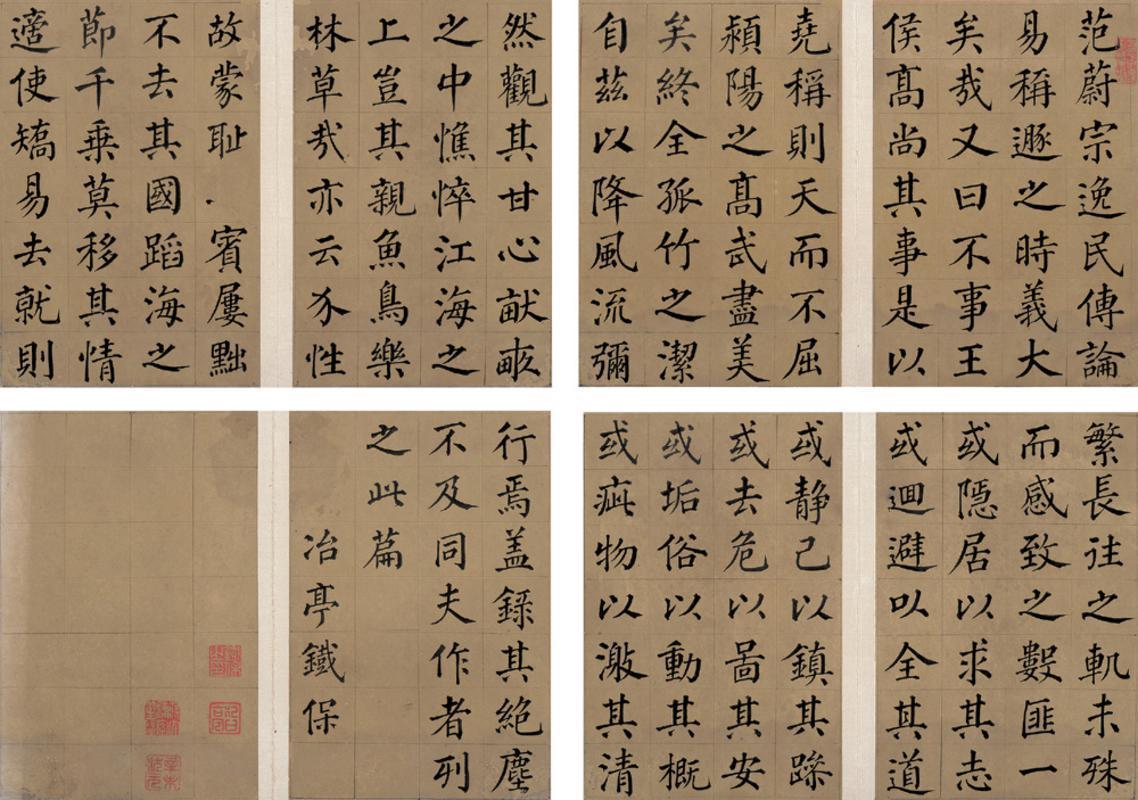 范蔚宗逸民傳論
易稱遯之時義大
矣哉又曰不事王
侯髙尚其事是以
堯稱則天而不屈
潁陽之髙武盡美
矣終全孤竹之潔
自茲以降風流彌
繁長往之軌未殊
而感致之數匪一
或隱居以求其志
或迴避以全其道
或静己以鎮其躁
或去危以啚其安
或垢俗以動其概
或疵物以激其清
然觀其甘心畎畝
之中憔悴江海之
上豈其親魚鳥樂
林草哉亦云介性
故蒙耻賓屢黜
不去其國蹈海之
節千乘莫移其情
適使矯易去就則
行焉盖錄其絕塵
不及同夫作者列
之此篇
冶亭鐵保